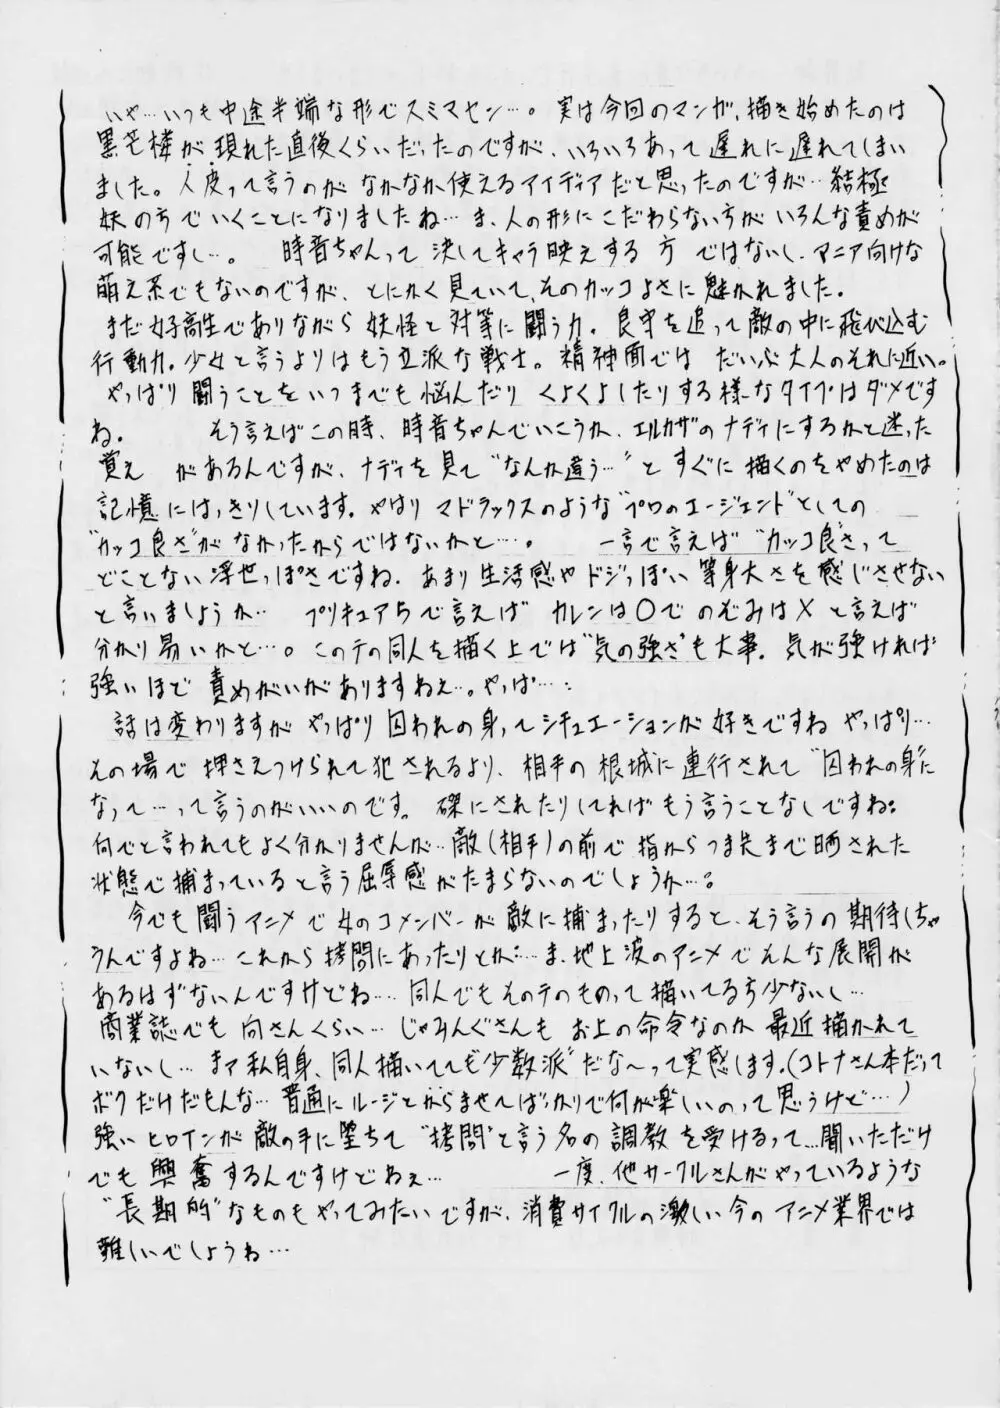 いや…いつも中途半端な形でスミマセン…。 実は今回のマンガ、描き始めたのは
黒芒楼が現れた直後くらいだったのですが、いろいろあって遅れに遅れてしまい
ました。人皮って言うのがなかなか使えるアイディアだと思ったのですが…結極
妖の方でいくことになりましたね…ま、人の形にこだわらない方がいろんな責めが
可能ですし…。 時音ちゃんって決してキャラ映えする方ではないし、マニア向けな
萌え系でもないのですが、とにかく見ていて、そのカッコよさに魅かれました。
まだ女子高生でありながら妖怪と対等に闘う力。良守を追って敵の中に飛び込む
行動力。少女と言うよりはもう立派な戦士。精神面ではだいぶ大人のそれに近い。
やっぱり闘うことをいつまでも悩んだりくよくよしたりする様なタイプはダメです
ね。 そう言えばこの時、時音ちゃんでいこうか、エルカザのナディにするかと迷った
覚えがあるんですが、ナディを見て“なんか違う…”とすぐに描くのをやめたのは
記憶にはっきりしています。やはりマドラックスのような“プロのエージェント”としての
“カッコ良さ”がなかったからではないかと…。 一言で言えば“カッコ良さ”って
どことない浮世っぽさですね。あまり生活感やドジっぽい等身大さを感じさせない
と言いましょうか… プリキュア5で言えばカレンは○でのぞみは×と言えば
分かり易いかと…。このテの同人を描く上では“気の強さ”も大事。気が強ければ
強いほど責めがいがありますねぇ…。やっぱ…
話は変わりますがやっぱり囚われの身ってシチュエーションが好きですねやっぱり…
その場で押さえつけられて犯されるより、相手の根城に連行されて“囚われの身”に
なって…って言うのがいいのです。磔にされたりしてればもう言うことなしですね。
何でと言われてもよく分かりませんが…敵(相手)の前で指からつま先まで晒された
状態で捕まっていると言う屈辱感がたまらないのでしょうか…。
今でも闘うアニメで女のコメンバーが敵に捕まったりすると、そう言うの期待しちゃ
うんですよね…これから拷問にあったりとか…ま、地上波のアニメでそんな展開が
あるはずないんですけどね…同人でもそのテのものって描いてる方少ないし…
商業誌でも向さんくらい…じゃみんぐさんもお上の命令なのか最近描かれて
いないし…まァ私自身、同人描いてても“少数派”だな～って実感します。(コトナさん本だって
ボクだけだもんな…普通にルージとからませてばっかりで何が楽しいのって思うけど…)
強いヒロインが敵の手に堕ちて“拷問”と言う名の調教を受けるって…聞いただけ
でも興奮するんですけどねぇ… 一度、他サークルさんがやっているような
“長期的”なものもやってみたいですが、消費サイクルの激しい今のアニメ業界では
難しいでしょうね…